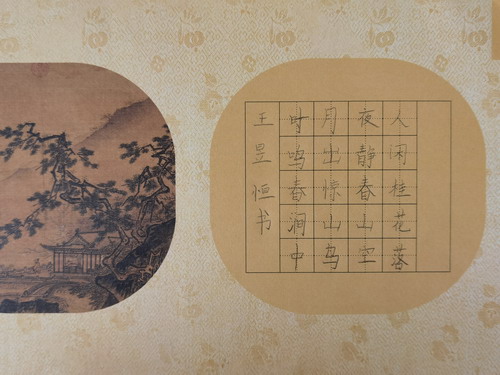 人闲桂花落
夜静春山空
月出惊山鸟
时鸣春涧中
王昱恒书